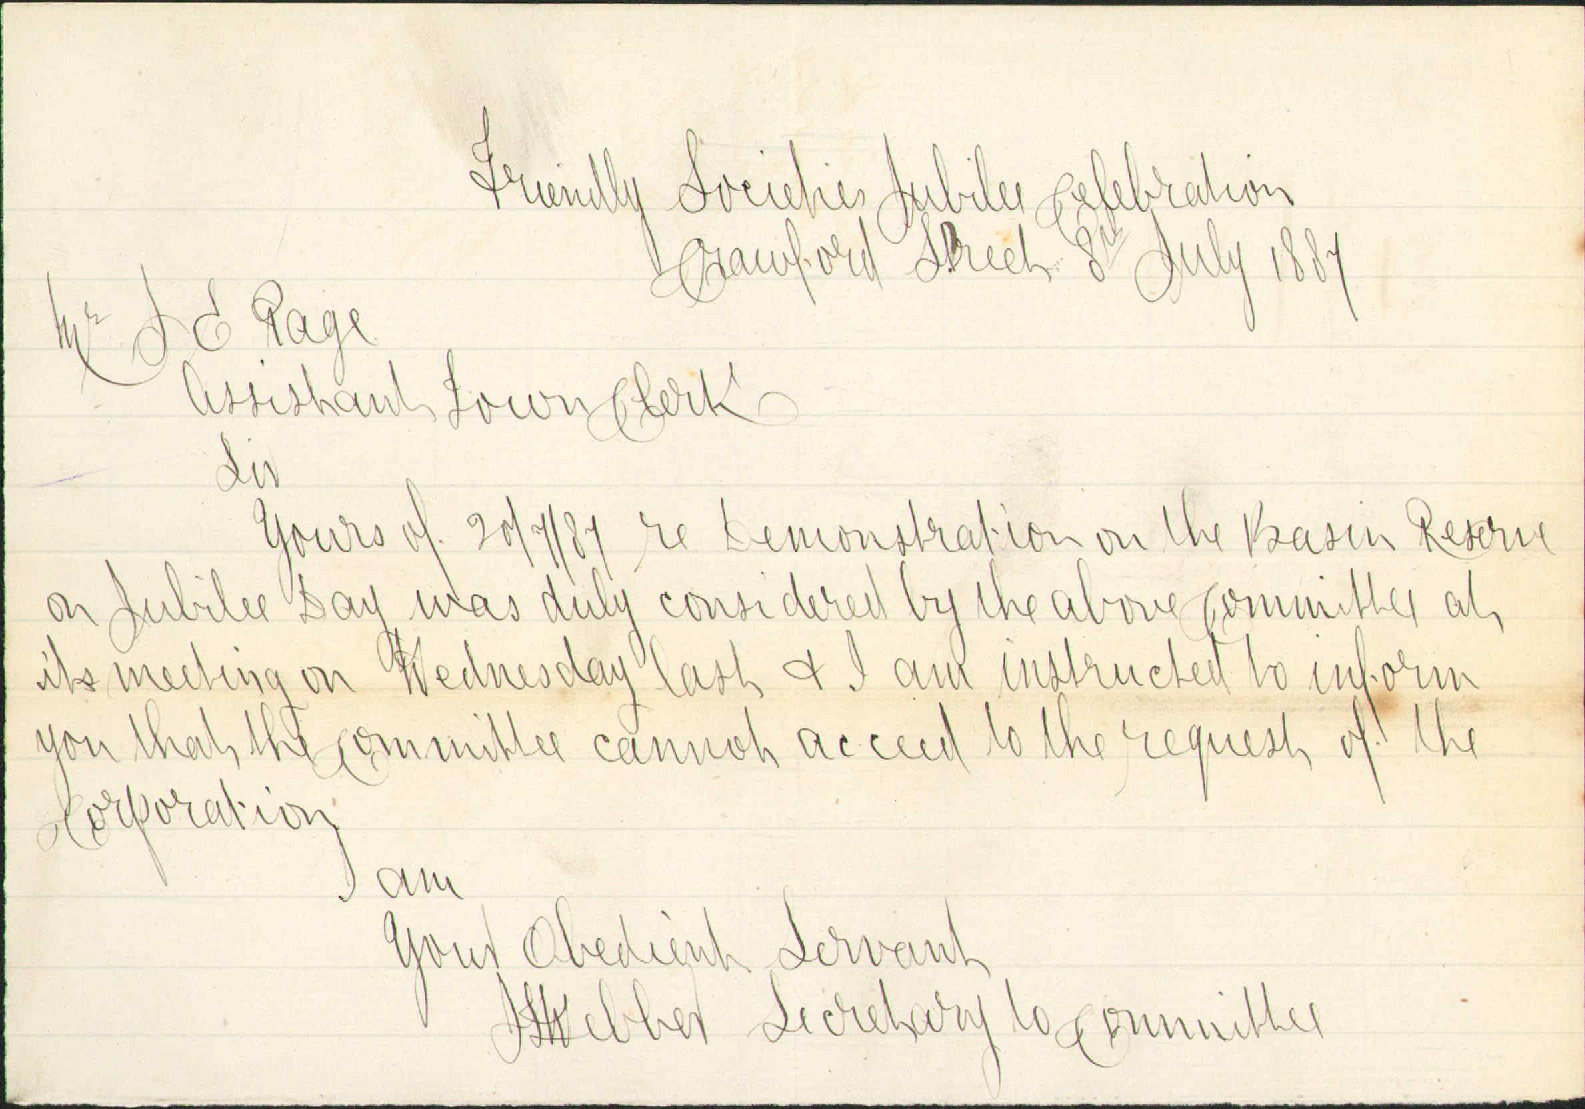 Friendly Societies Jubilee Celebration
Crawford Street 8th July 1887
Mr J E Page
Assistant Town Clerk
Sir
Yours of 20/7/87 re Demonstration on the Basin Reserve
on Jubilee Day was duly considered by the above Committee at
its meeting on Wednesday last & I am instructed to inform
you that the Committee cannot acceed to the request of the
Corporation
I am
Your Obedient Servant
Webber Secretary to Committee